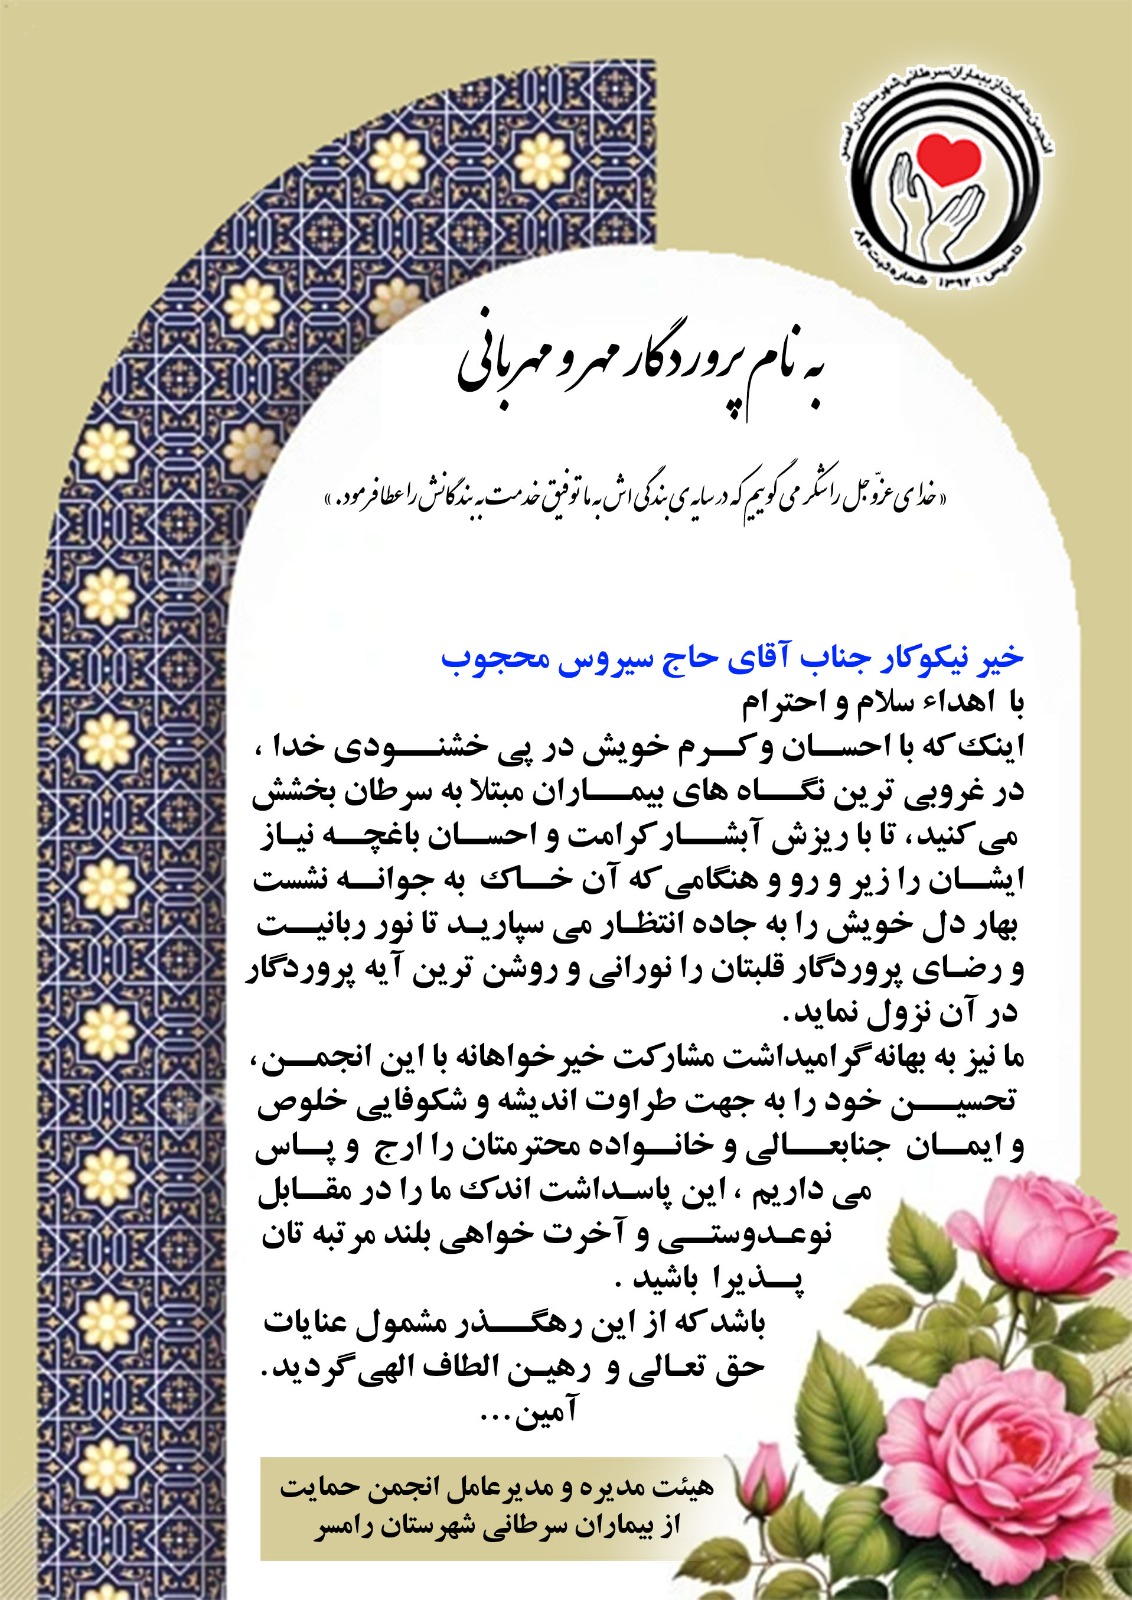 انجمن حمایت از بیماران سرطانی شهرستان رامسر
تاسیس : ۱۳۹۲ شماره ثبت ۸۴
به نام پروردگار مهر و مهربانی
« خدای عزّوجل را شکر می گوییم که در سایه ی بندگی اش به ما توفیق خدمت به بندگانش را عطا فرمود. »
خیر نیکوکار جناب آقای حاج سیروس محجوب
با اهداء سلام و احترام
اینک که با احسان و کرم خویش در پی خشنودی خدا ،
در غروبی ترین نگاه های بیماران مبتلا به سرطان بخشش
می کنید، تا با ریزش آبشار کرامت و احسان باغچه نیاز
ایشان را زیر و رو و هنگامی که آن خاک به جوانه نشست
بهار دل خویش را به جاده انتظار می سپارید تا نور ربانیت
و رضای پروردگار قلبتان را نورانی و روشن ترین آیه پروردگار
در آن نزول نماید.
ما نیز به بهانه گرامیداشت مشارکت خیرخواهانه با این انجمن،
تحسین خود را به جهت طراوت اندیشه و شکوفایی خلوص
و ایمان جنابعالی و خانواده محترمتان را ارج و پاس
می داریم ، این پاسداشت اندک ما را در مقابل
نوعدوستی و آخرت خواهی بلند مرتبه تان
پذیرا باشید .
باشد که از این رهگذر مشمول عنایات
حق تعالی و رهین الطاف الهی گردید.
آمین...
هیئت مدیره و مدیرعامل انجمن حمایت
از بیماران سرطانی شهرستان رامسر